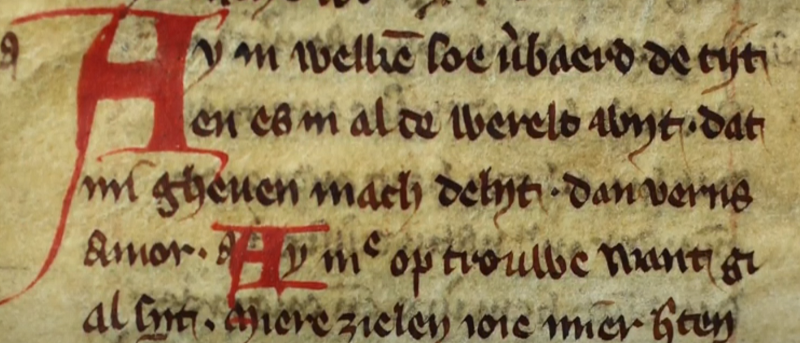 Ay in welkē soe v̉baerd de tijt
en es in al de werelt wijt · dat
mi gheuen mach delijt · dan verus
Amor · Ay mᵉ op trouwe want gi
al sijt · Miere zielen ioie mier h̄ten